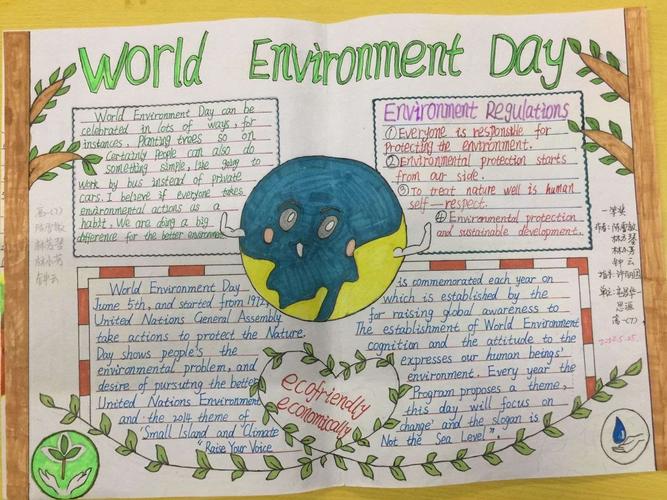 World Environment Day
World Environment Day can be
celebrated in lots of ways, for
instances, Planting trees so on
Certainly people can also do
something simple, like going to
work by bus instead of private
cars. I believe if everyone takes
environmental actions as a
habit. We are doing a big
difference for the better environment
Environment Regulations
①Everyone is responsible for
Protecting the environment.
②Environmental protection starts
from our side.
③To treat nature well is human
self-respect.
④Environmental protection
and sustainable development.
World Environment Day
June 5th, and started from 1972
United Nations General Assembly
take actions to protect the Nature.
Day shows people's the
environmental problem, and
desire of pursuing the better
United Nations Environment
and the 2014 theme of
'Small Island and 'Climate
"Raise Your Voice
is commemorated each year on
which is established by the
for raising global awareness to
The establishment of World Environment
cognition and the attitude to the
expresses our human beings'
environment. Every year the
Program proposes a theme,
this day will focus on
change' and the slogan is
Not the Sea Level".
ecofriendly
economically
一等奖
高一(7)